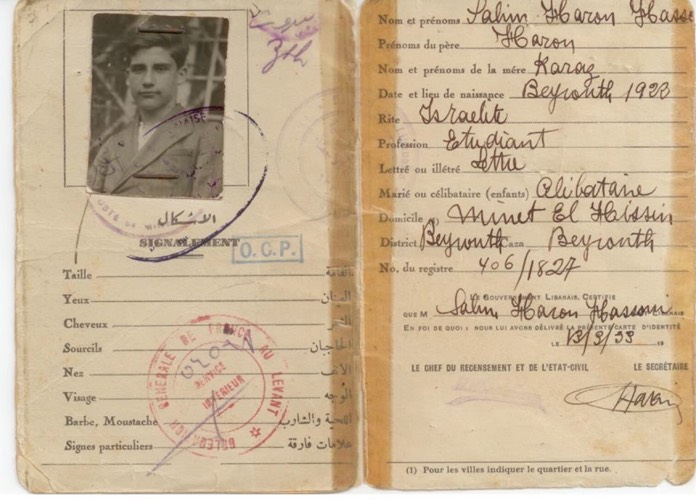 الاشكال
SIGNALEMENT
O.C.P.
Taille القامة
Yeux
Cheveux الشعر
Sourcils الحاجبان
Nez الانف
Visage الوجه
Barbe, Moustache اللحية والشارب
Signes particuliers علامات فارقة
DÉLÉGATION GÉNÉRALE DE FRANCE AU LEVANT
SERVICE
INTÉRIEUR
Nom et prénoms Salim Haron Hasso
Prénoms du père Haron
Nom et prénoms de la mère
Date et lieu de naissance Beyrouth 1923
Rite Israelite
Profession Etudiant
Lettré ou illétré Lettre
Marié ou célibataire (enfants) Célibataire
Domicile (1) Minet El Hissin
District Beyrouth Caza Beyrouth
No. du registre 406/1827
LE GOUVERNEMENT LIBANAIS, CERTIFIE
QUE M Salim Haron Hasson
EN FOI DE QUOI: NOUS LUI AVONS DÉLIVRÉ LA PRÉSENTE CARTE D'IDENTITÉ
LE 19
LE CHEF DU RECENSEMENT ET DE L'ETAT-CIVIL LE SECRÉTAIRE
(1) Pour les villes indiquer le quartier et la rue.